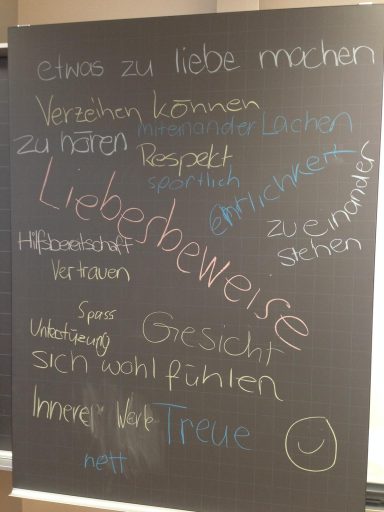 etwas zu liebe machen
Verzeihen können
zu hören
miteinander Lachen
Respekt
sportlich
Liebesbeweise
zu einander
stehen
Hilfsbereitschaft
Vertrauen
Spass
Unterstüzung
Gesicht
sich wohl fühlen
Innere Werte
Treue
nett